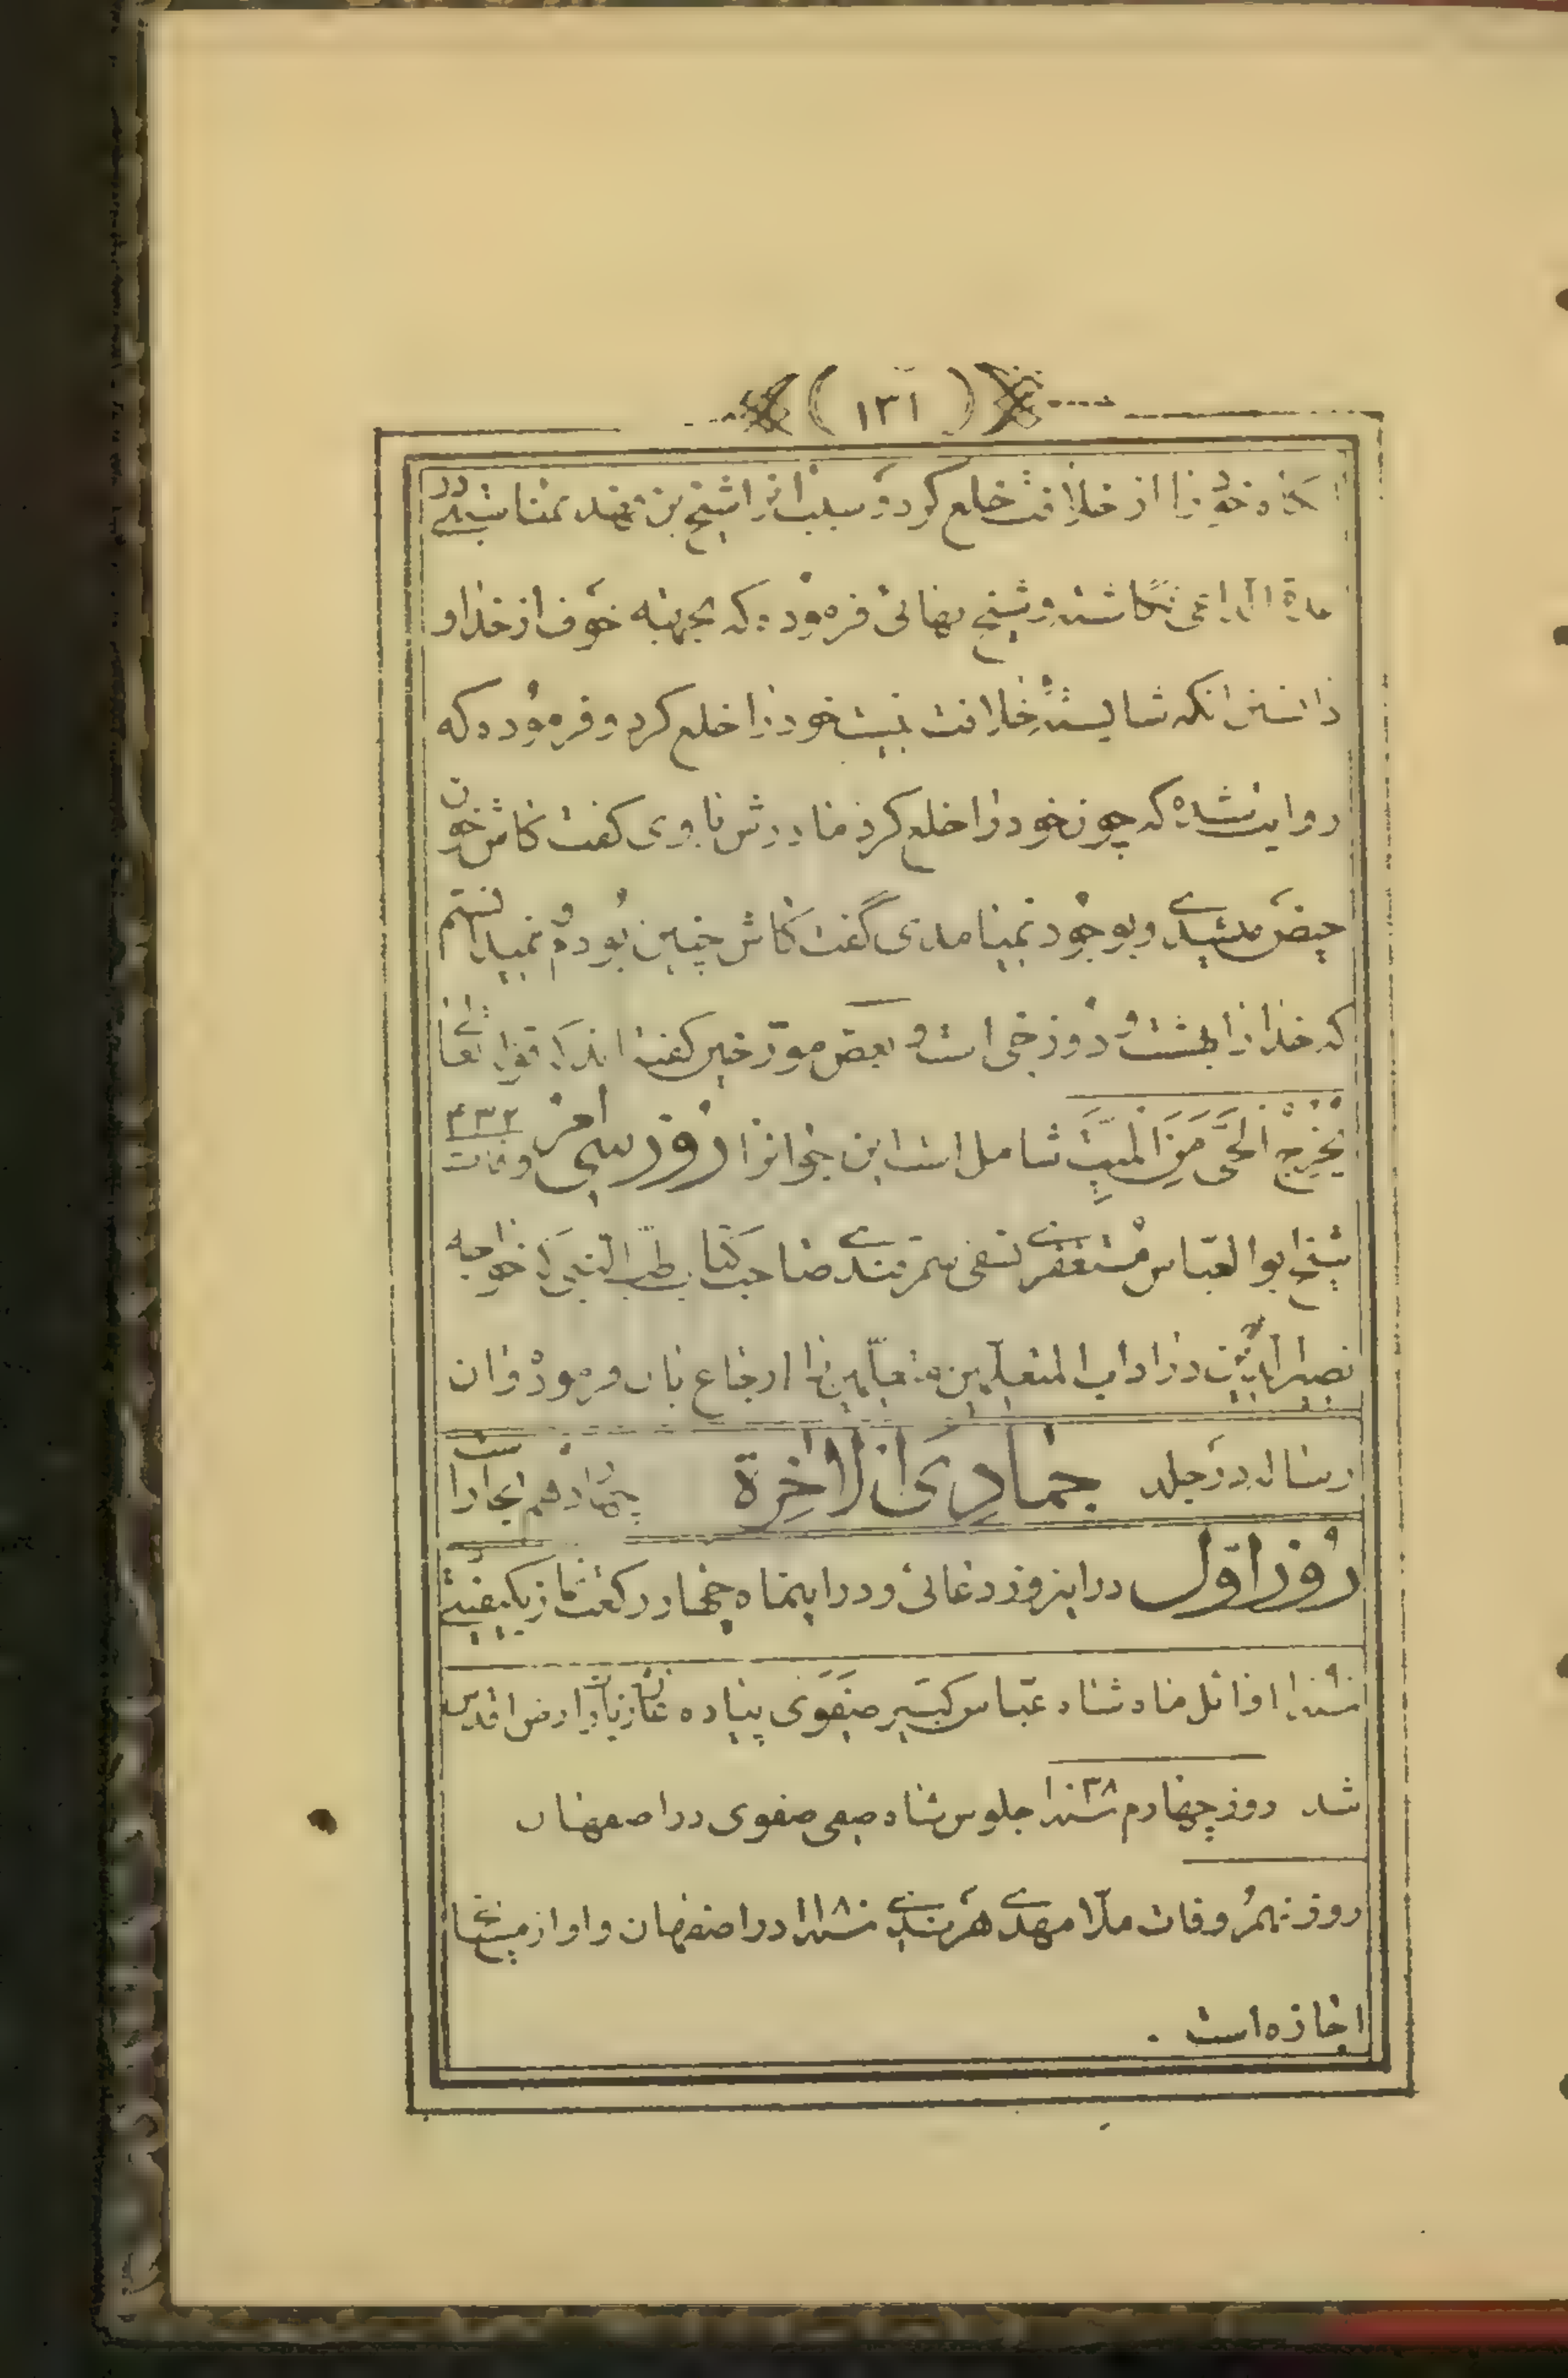 (۱۳۱)
خود را از خلافت خلع کرد و سبب آنرا شیخ بن فهد بمناسبتی در
عدة الداعی نگاشته و شیخ بهائی فرموده که بجهته خوف از خدا و
دانستن آنکه شایسته خلافت نیست خود را خلع کرد و فرموده که
روایت شده که چون خود را خلع کرد مادرش با وی گفت کاش خون
حیض میشدی و بوجود نمیامدی گفت کاش چنین بودم و نمیدانستم
که خدا را بهشت و دوزخی است و بعض مورّخین گفته اند که قول تعالی
یُخْرِجُ الْحَیَّ مِنَ الْمَیِّتِ شامل است این جوانرا روز سی‌ام ۴۳۲ وفات
شیخ ابو العبّاس مُسْتَغْفِری نسفی سمرقندی صاحب کتاب طبّ النّبی که خواجه
نصیر الدّین در آداب المتعلّمین متعلّمین را ارجاع بآن فرمود و آن
رساله در جلد چهاردهم بحار است
جُمادِیَ الْاٰخِرَة
روز اوّل در اینروز دعائی و در اینماه چهار رکعت نماز بکیفیتی
اوائل ماه شاه عبّاس کبیر صفوی پیاده عازم زیارت ارض اقدس
شد روز چهارم ۱۰۳۸ جلوس شاه صفی صفوی در اصفهان
روز نهم وفات ملّا مهدی هرندی ۱۱۸۰ در اصفهان و او از مشایخ
اجازه است .